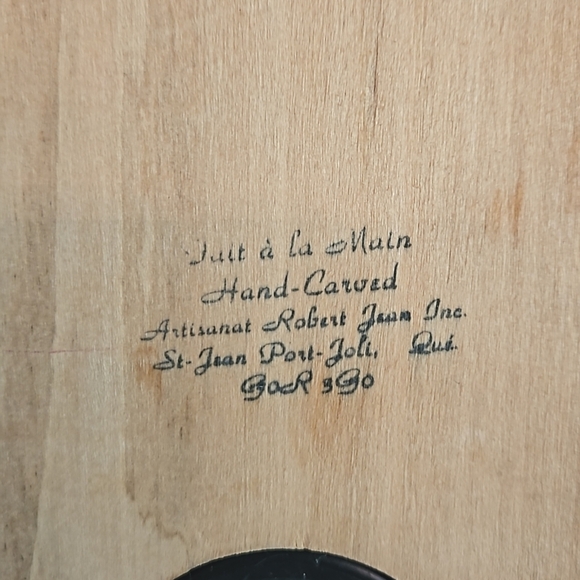 Fait à la Main
Hand-Carved
Artisanat Robert Jean Inc.
St-Jean Port-Joli, Qué.
G0R 3G0